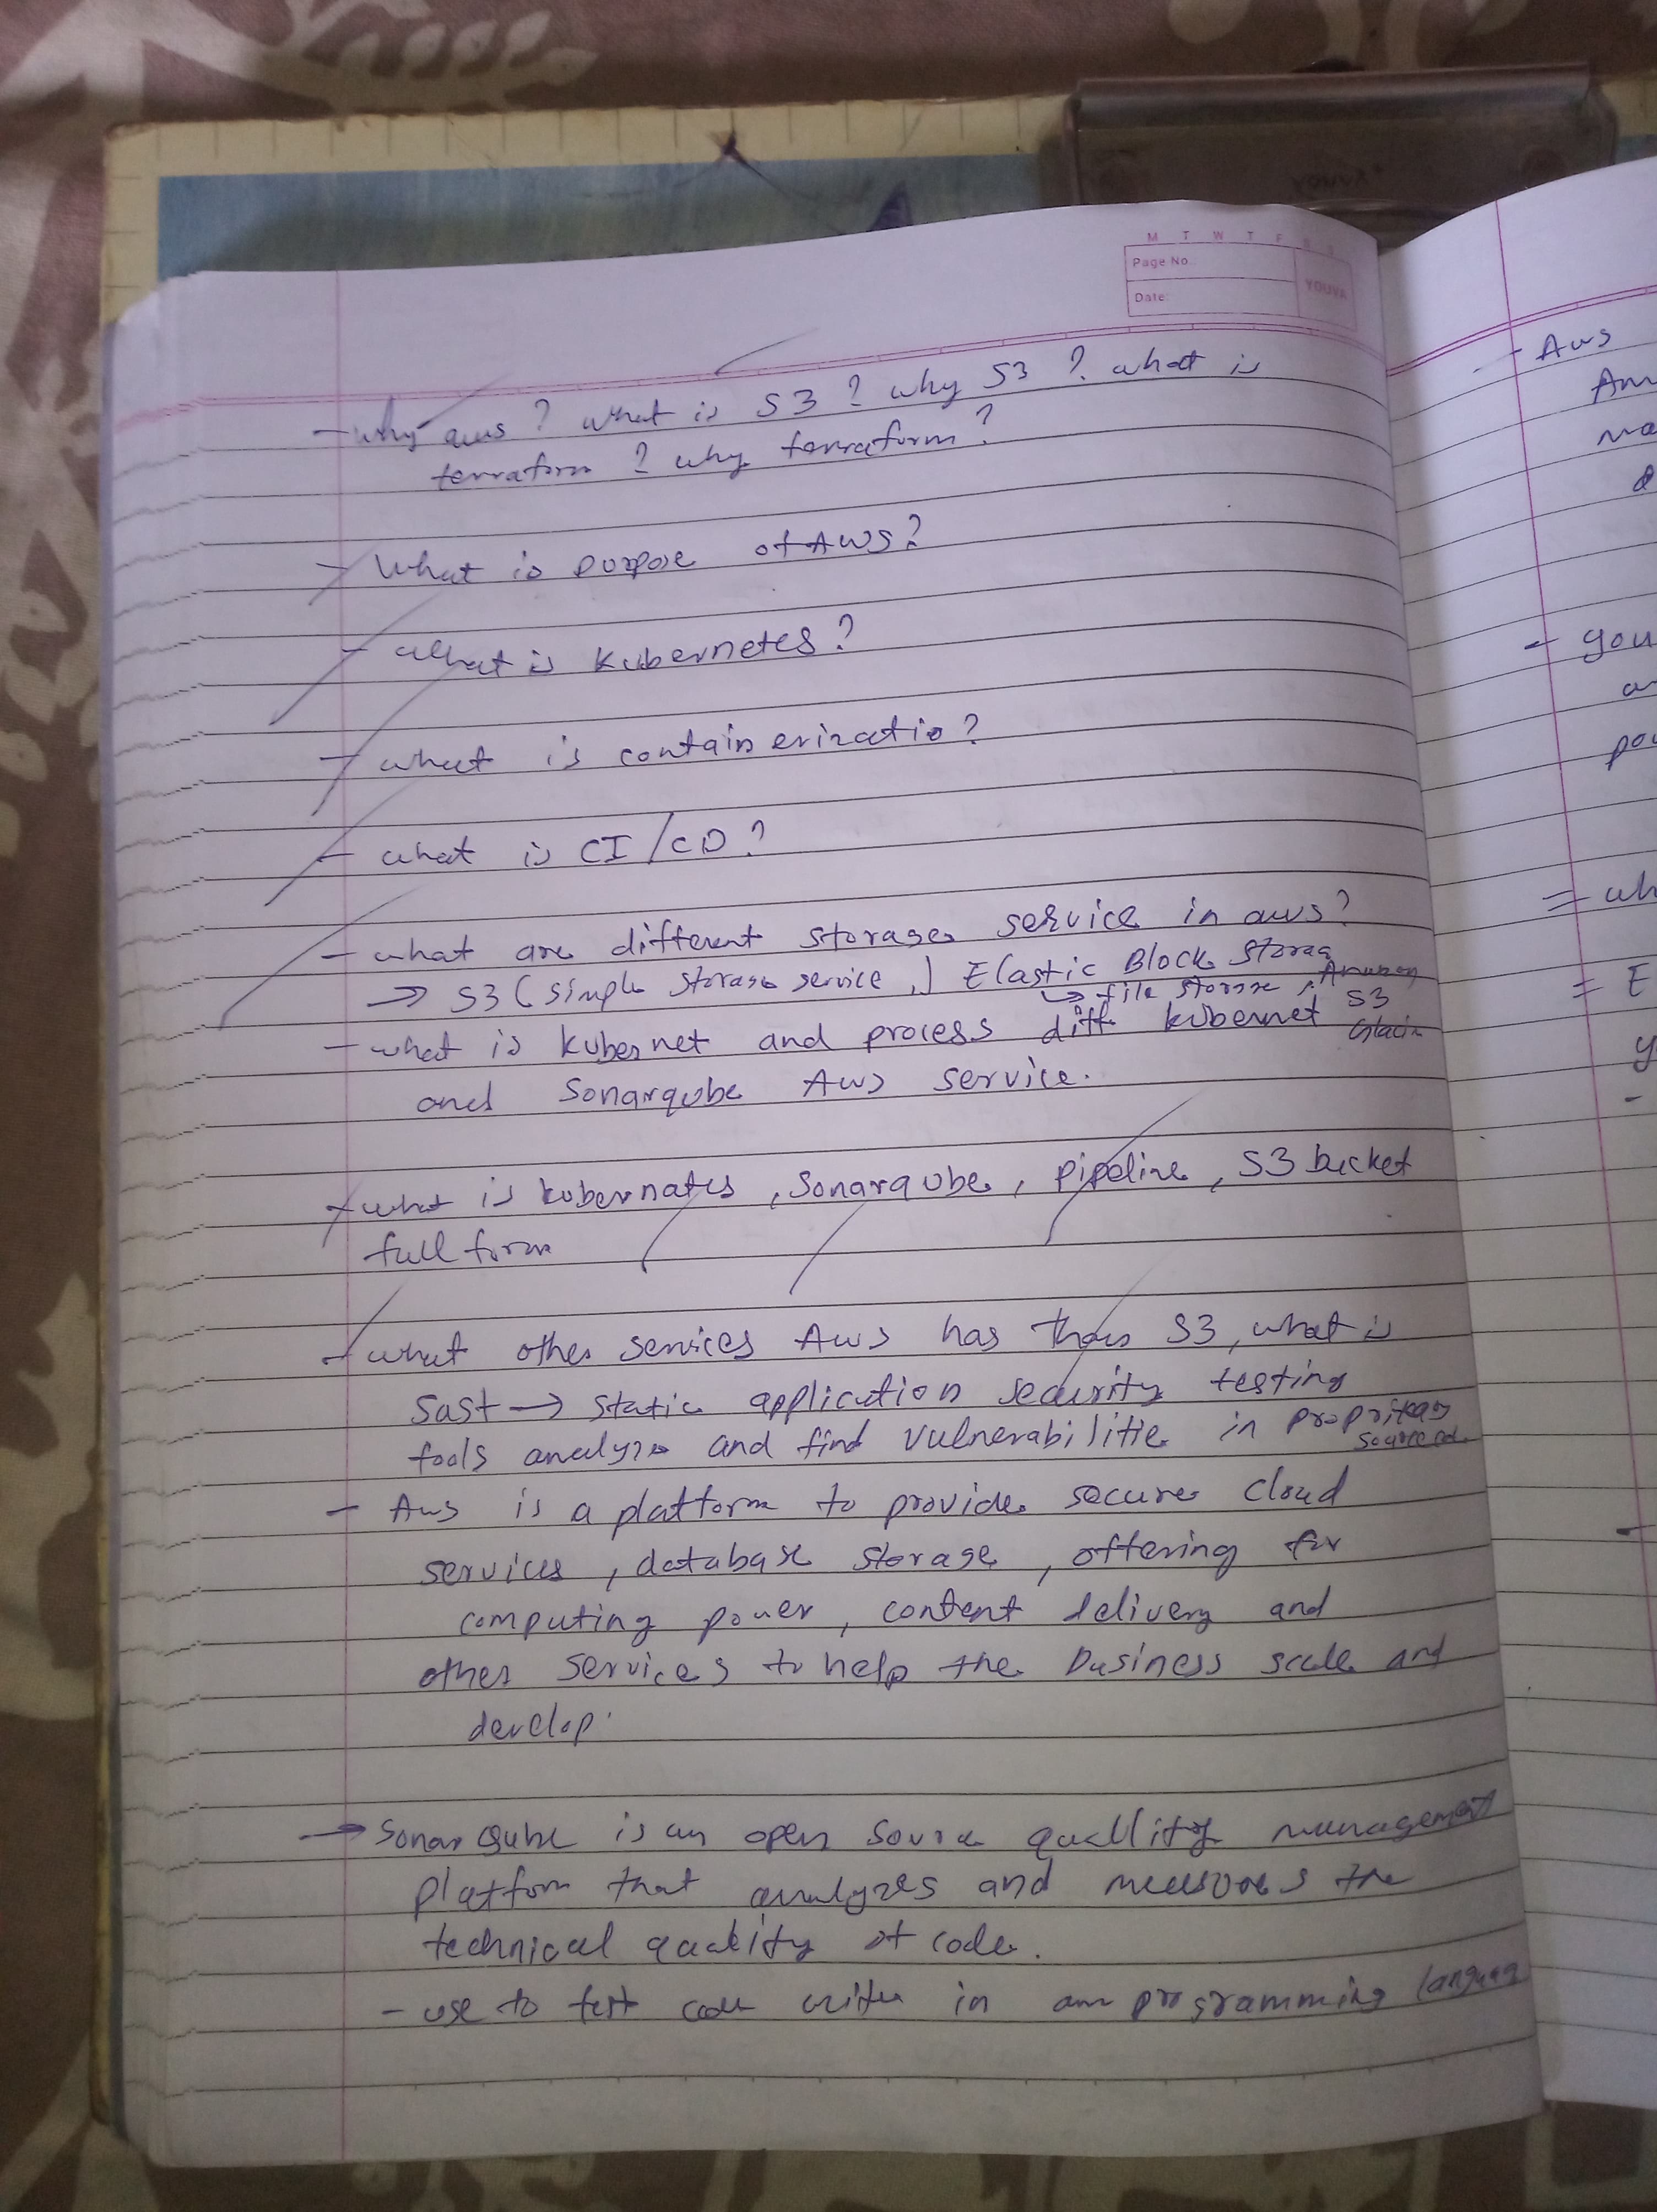 M T W T F S S
Page No.
Date:
YOUVA
- why aws ? what is S3 ? why S3 ? what is
terraform ? why terraform ?
- What is purpose of AWS?
- what is Kubernetes?
- what is containerizatio?
- what is CI/CD?
- what are different storage service in aws?
→ S3 (simple storage service,) Elastic Block Storag
↳ file storage, Amazon
S3
Glacir
- what is kubernet and process diff kubernet
and Sonarqube AWS service.
- what is kubernates, Sonarqube, pipeline, S3 bucket
full form
- what other services Aws has than S3, what is
Sast → static application security testing
tools analyze and find vulnerabilitie in propritary
source cod
- Aws is a platform to provide secure cloud
services, database storage, offering for
computing power, content delivery and
other services to help the business scale and
develop.
→ Sonar Qube is an open source quallity management
platform that analyzes and measures the
technical quality of code.
- use to test code write in programming languag
- Aws
Am
ma
d
- you
a
pou
= wh
= E
y
-